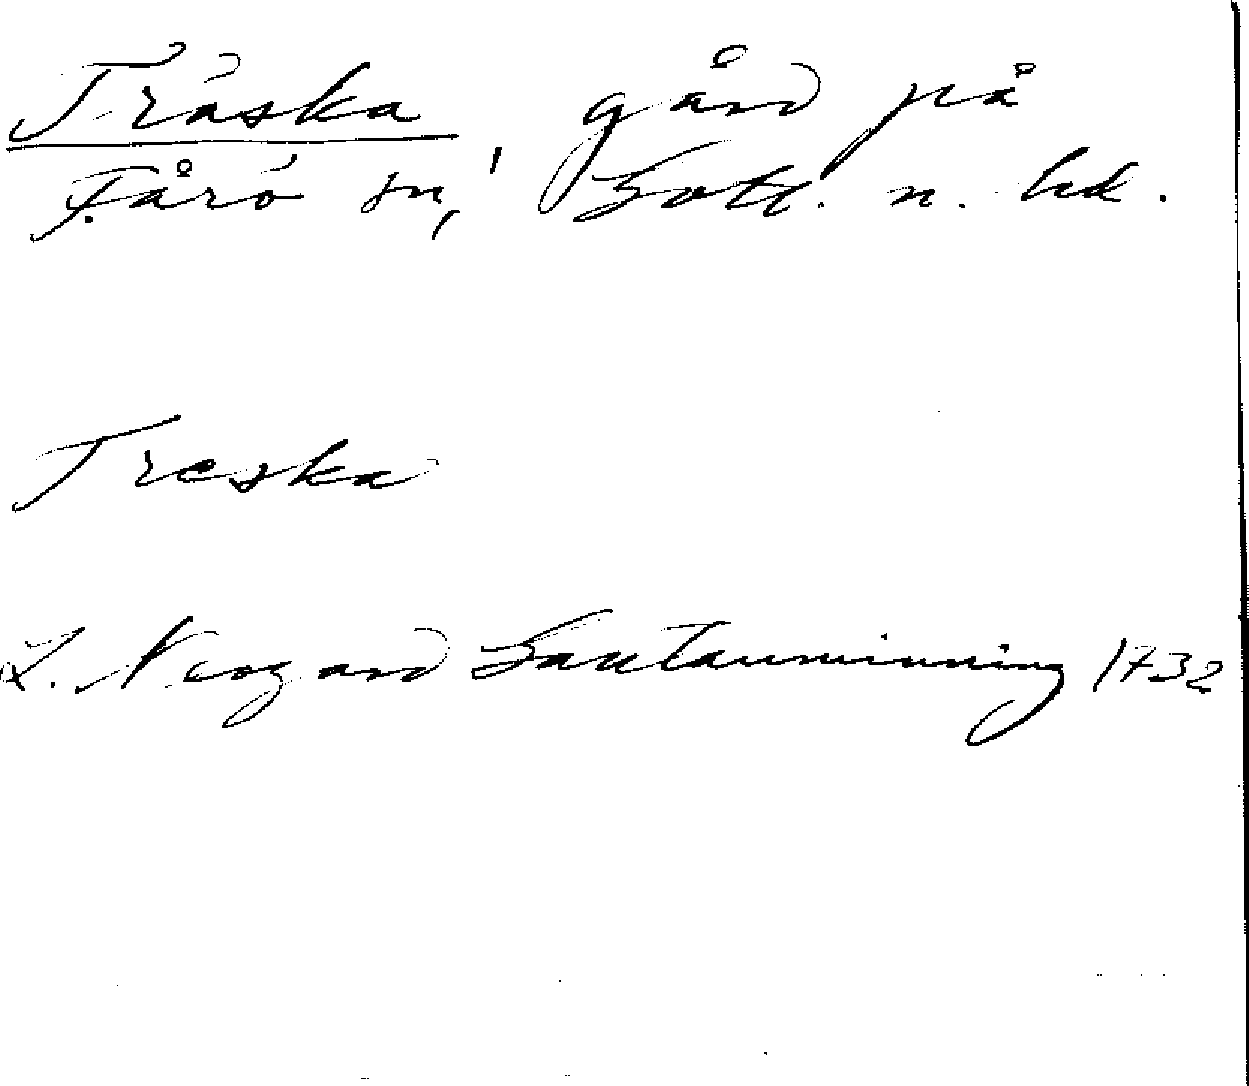 Träska, gård på
Fårö sn, Gotl. n. hd.
Treska
L. Neogard Gautauminning 1732